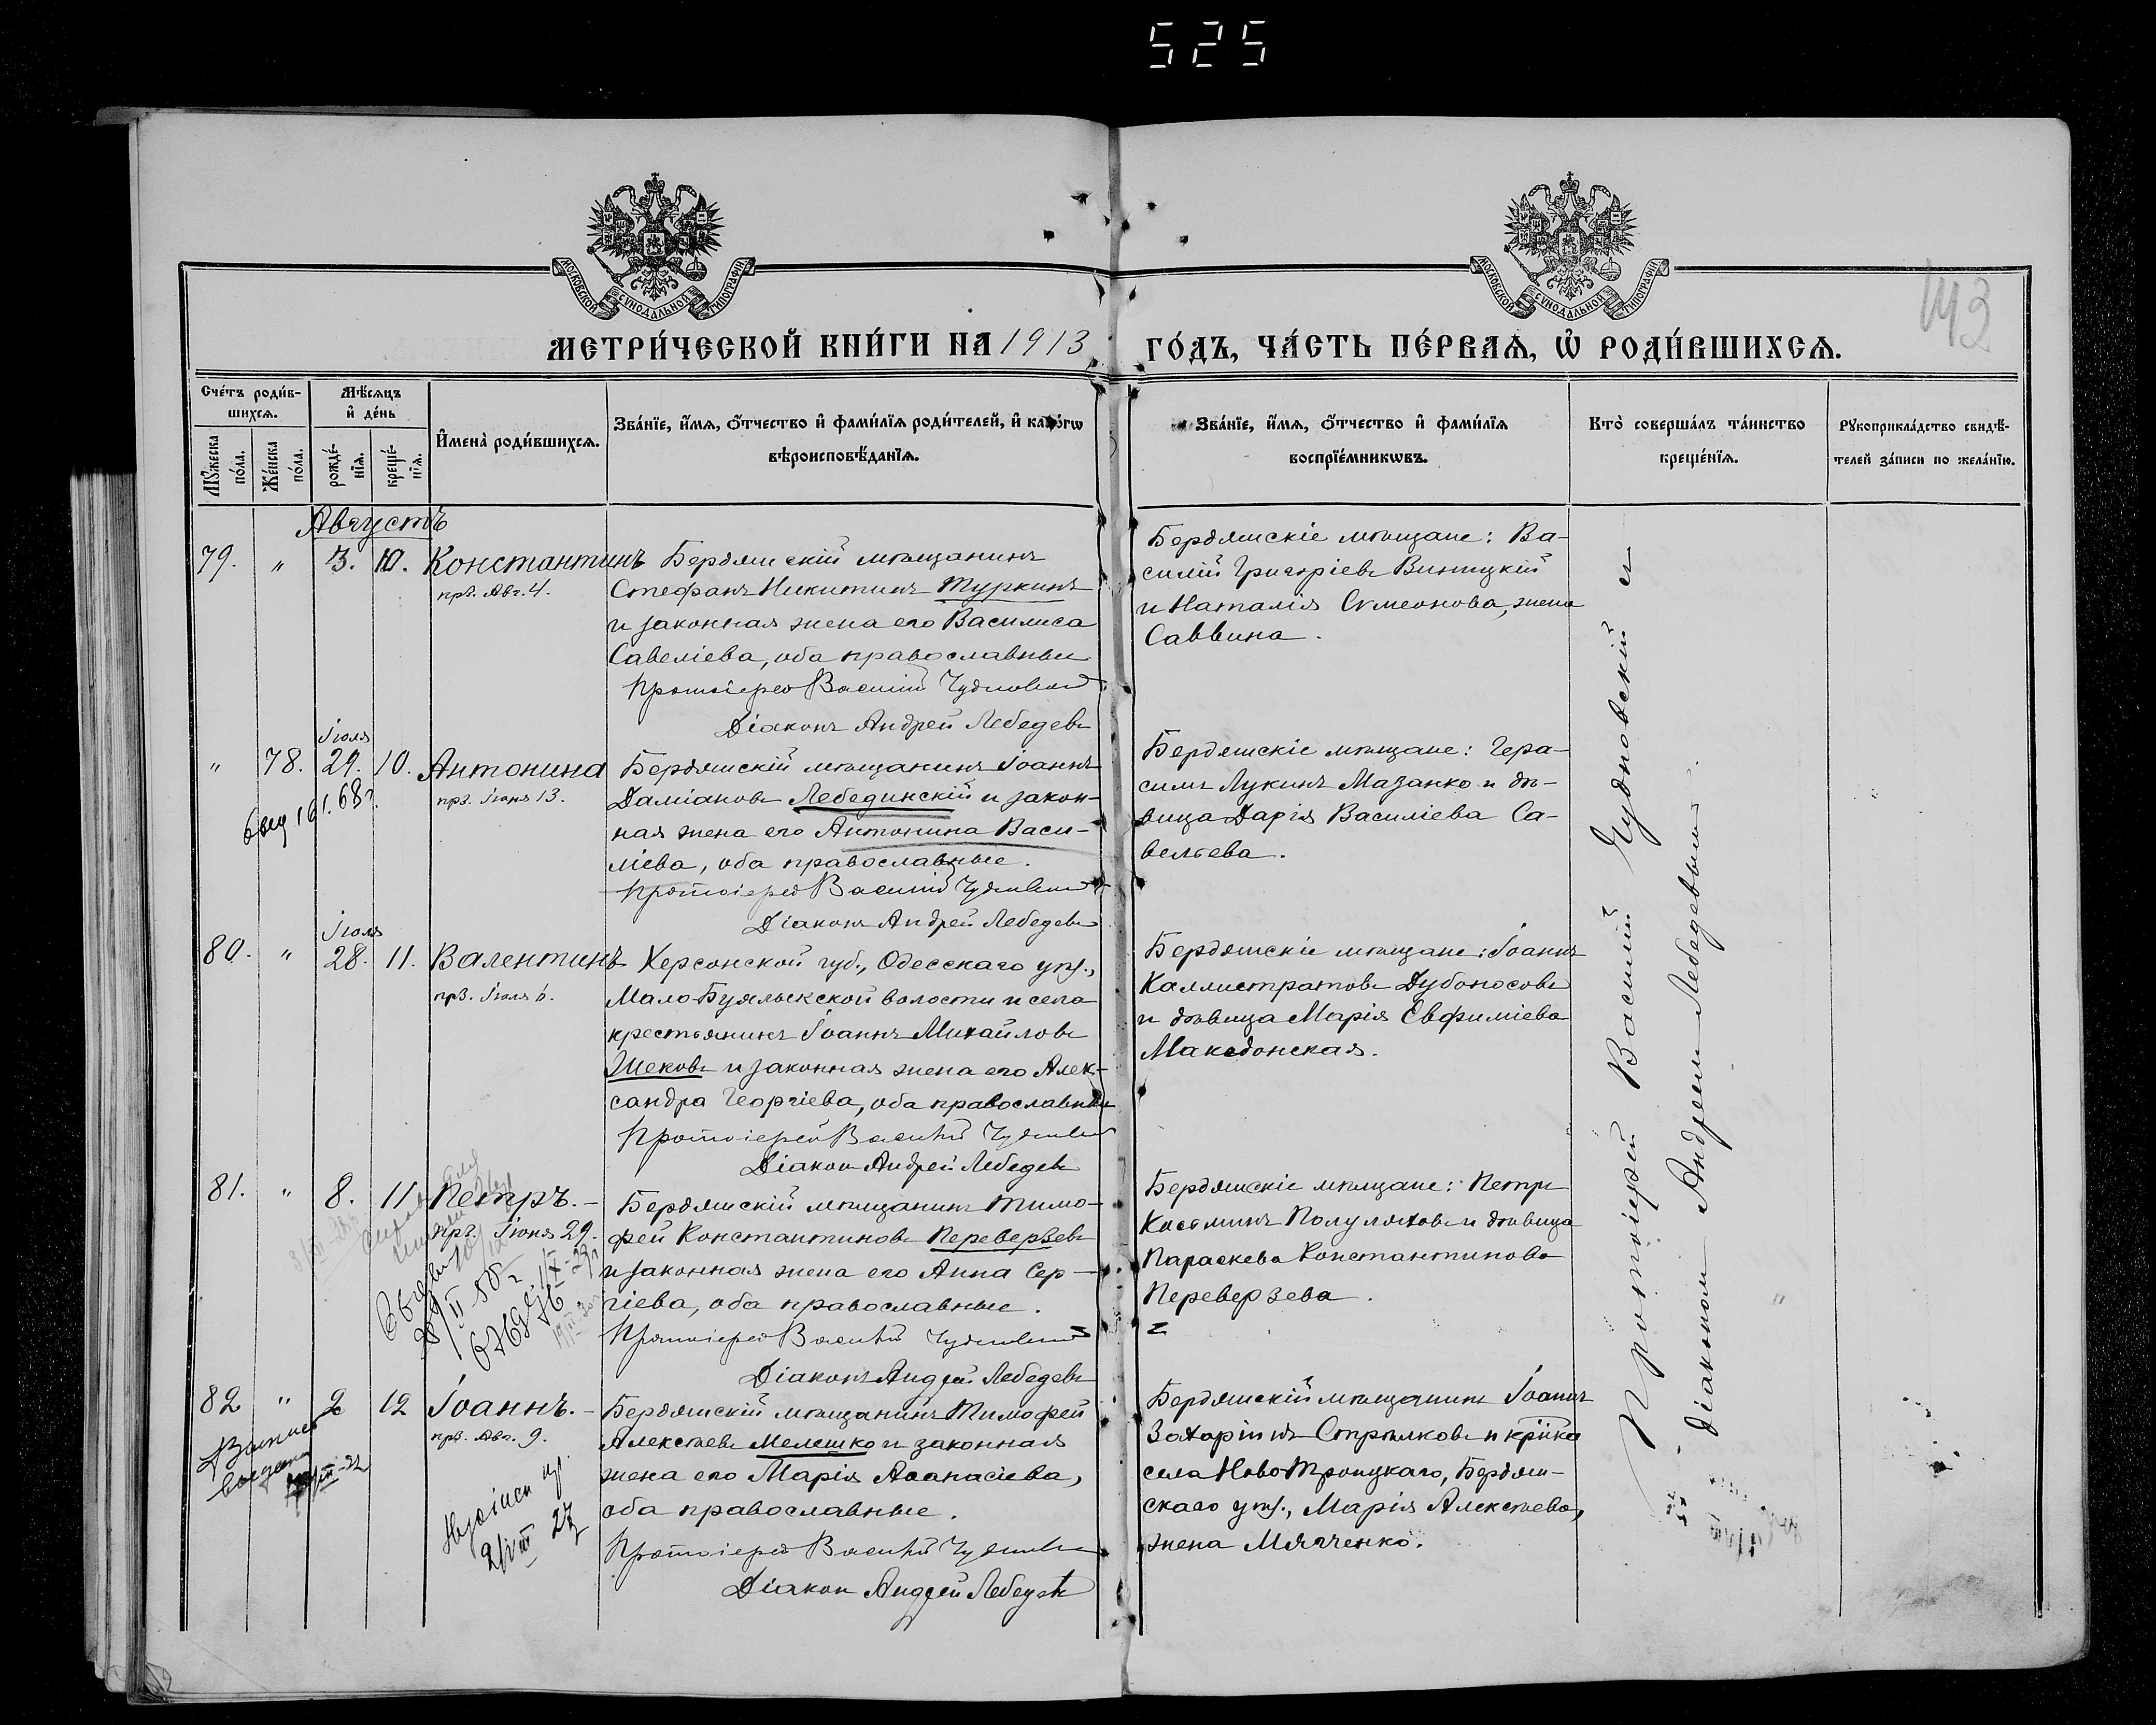 525
МОСКОВСКОЙ СѴНОДАЛЬНОЙ ТИПОГРАФІИ
МОСКОВСКОЙ СѴНОДАЛЬНОЙ ТИПОГРАФІИ
143
МЕТРИ́ЧЕСКОЙ КНИ́ГИ НА 1913 ГО́ДЪ, ЧА́СТЬ ПЕ́РВАѦ, Ѡ РОДИ́ВШИХСѦ.
Сче́тъ роди́в-
шихсѧ.
Мꙋ́жеска по́ла.
Же́нска по́ла.
Мѣ́сѧцъ
и҆ де́нь
рожде́-
нїѧ.
креще́-
нїѧ.
И҆мена̀ роди́вшихсѧ.
Зва́нїе, и҆́мѧ, ѻ҆́тчество и҆ фами́лїѧ роди́телей, и҆ како́гѡ
вѣроисповѣ́данїѧ.
Зва́нїе, и҆́мѧ, ѻ҆́тчество и҆ фами́лїѧ
воспрїе́мникѡвъ.
Кто̀ соверша́лъ та́инство
креще́нїѧ.
Рꙋкоприкла́дство свидѣ́-
телей за́писи по жела́нїю.
Августъ
79. " 3. 10. Константинъ
пр3. Авг. 4.
Бердянскій мѣщанинъ
Стефанъ Никитинъ Туркинъ
и законная жена его Василиса
Савеліева, оба православные
Протоіерей Василій Чудновскій
Діаконъ Андрей Лебедевъ
Бердянскіе мѣщане: Ва-
силій Григоріевъ Виницкій
и Наталія Сѵмеонова, жена
Саввина.
Іюля
" 78. 29. 10. Антонина
пр3. Іюня 13.
161. 68г.
Бердянскій мѣщанинъ Іоаннъ
Даміановъ Лебединскій и закон-
ная жена его Антонина Васи-
ліева, оба православные.
Протоіерей Василій Чудновскій
Діаконъ Андрей Лебедевъ
Бердянскіе мѣщане: Гера-
симъ Лукинъ Мазанко и дѣ-
вица Дарія Василіева Са-
вельева.
Іюля
80. " 28. 11. Валентинъ
пр3. Іюля 6.
Херсонской губ., Одесскаго уѣз.,
Мало-Буялыкской волости и села
крестьянинъ Іоаннъ Михайловъ
Шековъ и законная жена его Алек-
сандра Георгіева, оба православные
Протоіерей Василій Чудновскій
Діаконъ Андрей Лебедевъ
Бердянскіе мѣщане: Іоаннъ
Каллистратовъ Дубоносовъ
и дѣвица Марія Евфиміева
Македонская.
81. " 8. 11 Петръ.-
пр3. Іюня 29.
Бердянскій мѣщанинъ Тимо-
фей Константиновъ Переверзевъ
и законная жена его Анна Сер-
гіева, оба православные.
Протоіерей Василій Чудновскій
Діаконъ Андрей Лебедевъ
Бердянскіе мѣщане: Петръ
Косьминъ Полуляховъ и дѣвица
Параскева Константинова
Переверзева.
82 " 2 12 Іоаннъ.-
пр3. Авг. 9.
Бердянскій мѣщанинъ Тимофей
Алексѣевъ Мелешко и законная
жена его Марія Аѳанасіева,
оба православные.
Протоіерей Василій Чудновскій
Діаконъ Андрей Лебедевъ
Бердянскій мѣщанинъ Іоаннъ
Захаріинъ Стрѣлковъ и кр–ка
села НовоТроицкаго, Бердян-
скаго уѣз., Марія Алексѣева,
жена Мятченко.
Протоіерей Василій Чудновскій съ
діакономъ Андреемъ Лебедевымъ.